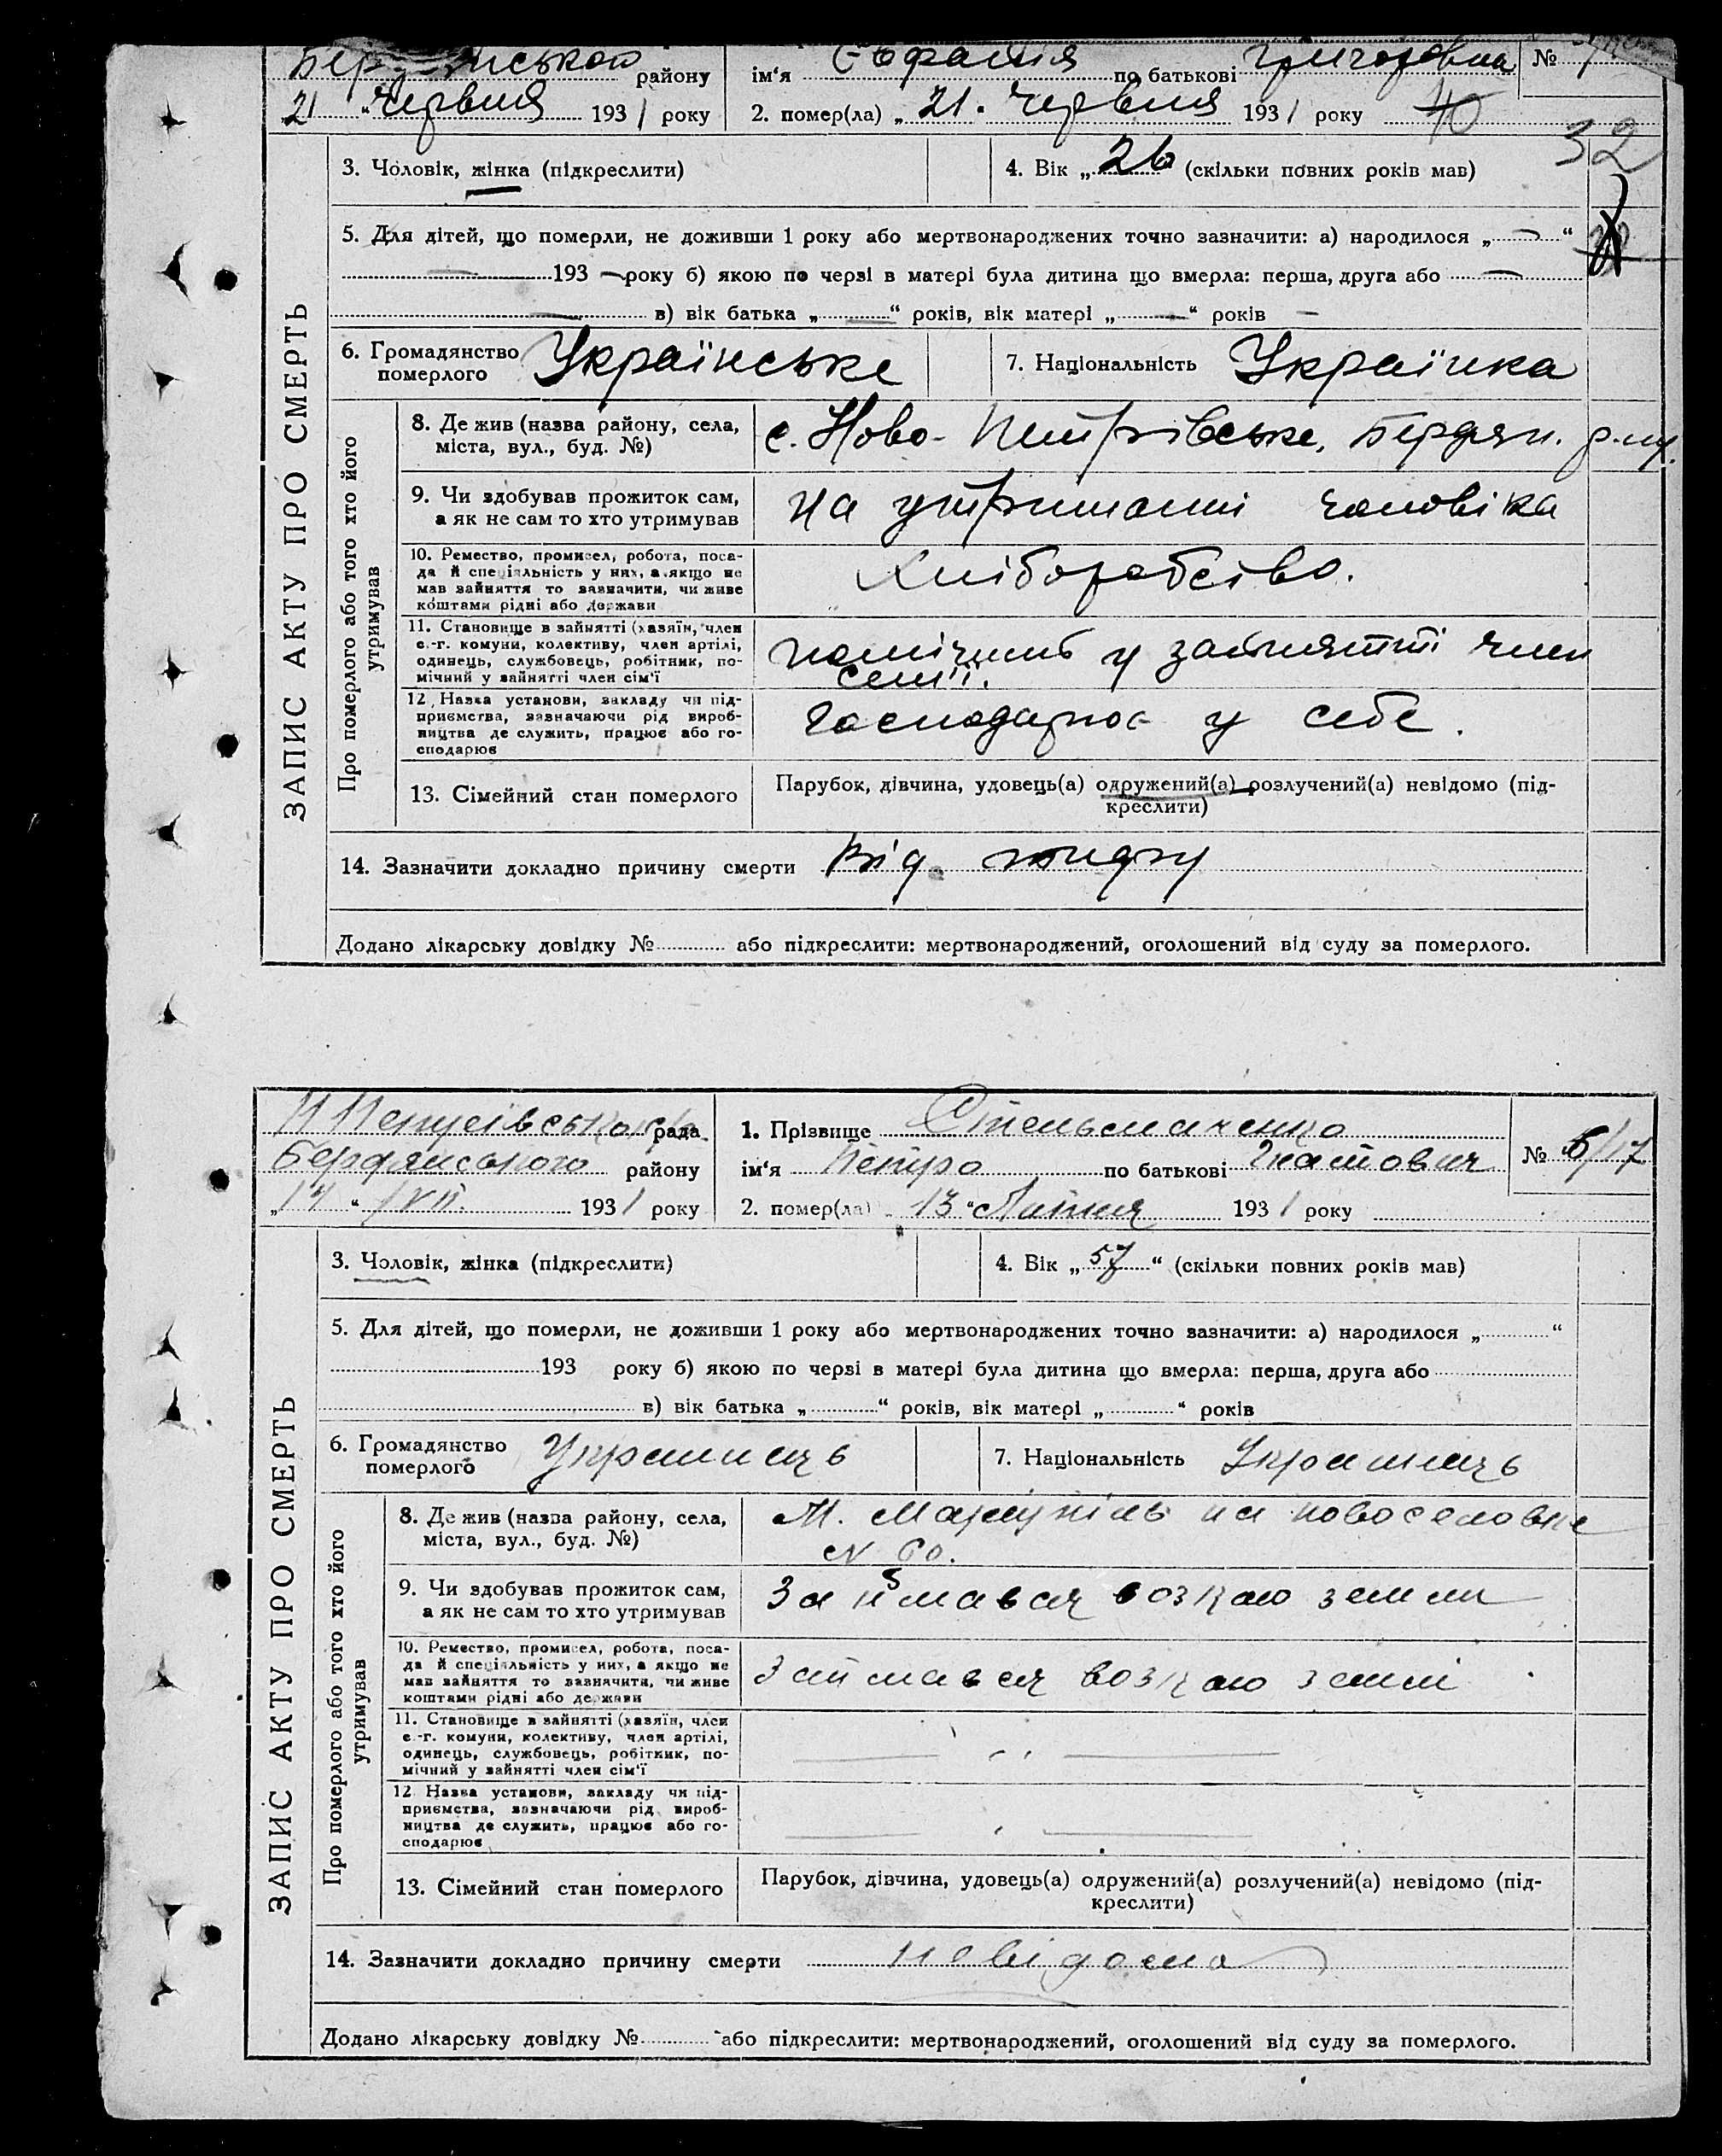 Бердянського району ім'я по батькові Григоровна №
21 " Червня 1931 року 2. помер(ла) „ 21. Червня 1931 року 40
32
3. Чоловік, жінка (підкреслити) 4. Вік „ 26 (скільки повних років мав)
5. Для дітей, що померли, не доживши 1 року або мертвонароджених точно зазначити: а) народилося „ — “
— 193 — року б) якою по черзі в матері була дитина що вмерла: перша, друга або —
— в) вік батька „ — “ років, вік матері „ — “ років —
6. Громадянство
померлого
Українське
7. Національність Українка
ЗАПИС АКТУ ПРО СМЕРТЬ
Про померлого або того хто його
утримував
8. Де жив (назва району, села,
міста, вул., буд. №)
с. Ново-Петрівське, Бердян. р-ну.
9. Чи здобував прожиток сам,
а як не сам то хто утримував
на утриманні чоловіка
10. Ремество, промисел, робота, поса-
да й спеціяльність у них, а якщо не
мав зайняття то зазначити, чи живе
коштами рідні або держави
Хліборобство.
11. Становище в зайнятті (хазяїн, член
с.-г. комуни, колективу, член артілі,
одинець, службовець, робітник, по-
мічний у зайнятті член сім'ї
у зайнятті член
семії.
12. Назва установи, закладу чи під-
приємства, зазначаючи рід вироб-
ництва де служить, працює або го-
сподарює
господарює у себе.
13. Сімейний стан померлого
Парубок, дівчина, удовець(а) одружений(а) розлучений(а) невідомо (під-
креслити)
14. Зазначити докладно причину смерти Від
Додано лікарську довідку № або підкреслити: мертвонароджений, оголошений від суду за померлого.
рада 1. Прізвище Стельмаченко
Бердянського району ім'я Петро по батькові № 6/17
„ 14 “ /VII. 1931 року 2. помер(ла) „ 13 “ Липня 1931 року
3. Чоловік, жінка (підкреслити) 4. Вік „ 57 “ (скільки повних років мав)
5. Для дітей, що померли, не доживши 1 року або мертвонароджених точно зазначити: а) народилося „ “
193 року б) якою по черзі в матері була дитина що вмерла: перша, друга або
в) вік батька „ “ років, вік матері „ “ років
6. Громадянство
померлого
Украинець
7. Національність Украинець
ЗАПИС АКТУ ПРО СМЕРТЬ
Про померлого або того хто його
утримував
8. Де жив (назва району, села,
міста, вул., буд. №)
М. Маріупіль на новоселовке
N 60.
9. Чи здобував прожиток сам,
а як не сам то хто утримував
Займався возкою земли
10. Ремество, промисел, робота, поса-
да й спеціяльність у них, а якщо не
мав зайняття то зазначити, чи живе
коштами рідні або держави
Займався возкою землі
11. Становище в зайнятті (хазяїн, член
с.-г. комуни, колективу, член артілі,
одинець, службовець, робітник, по-
мічний у зайнятті член сім'ї
12. Назва установи, закладу чи під-
приємства, зазначаючи рід вироб-
ництва де служить, працює або го-
сподарює
13. Сімейний стан померлого
Парубок, дівчина, удовець(а) одружений(а) розлучений(а) невідомо (під-
креслити)
14. Зазначити докладно причину смерти невідомо
Додано лікарську довідку № або підкреслити: мертвонароджений, оголошений від суду за померлого.